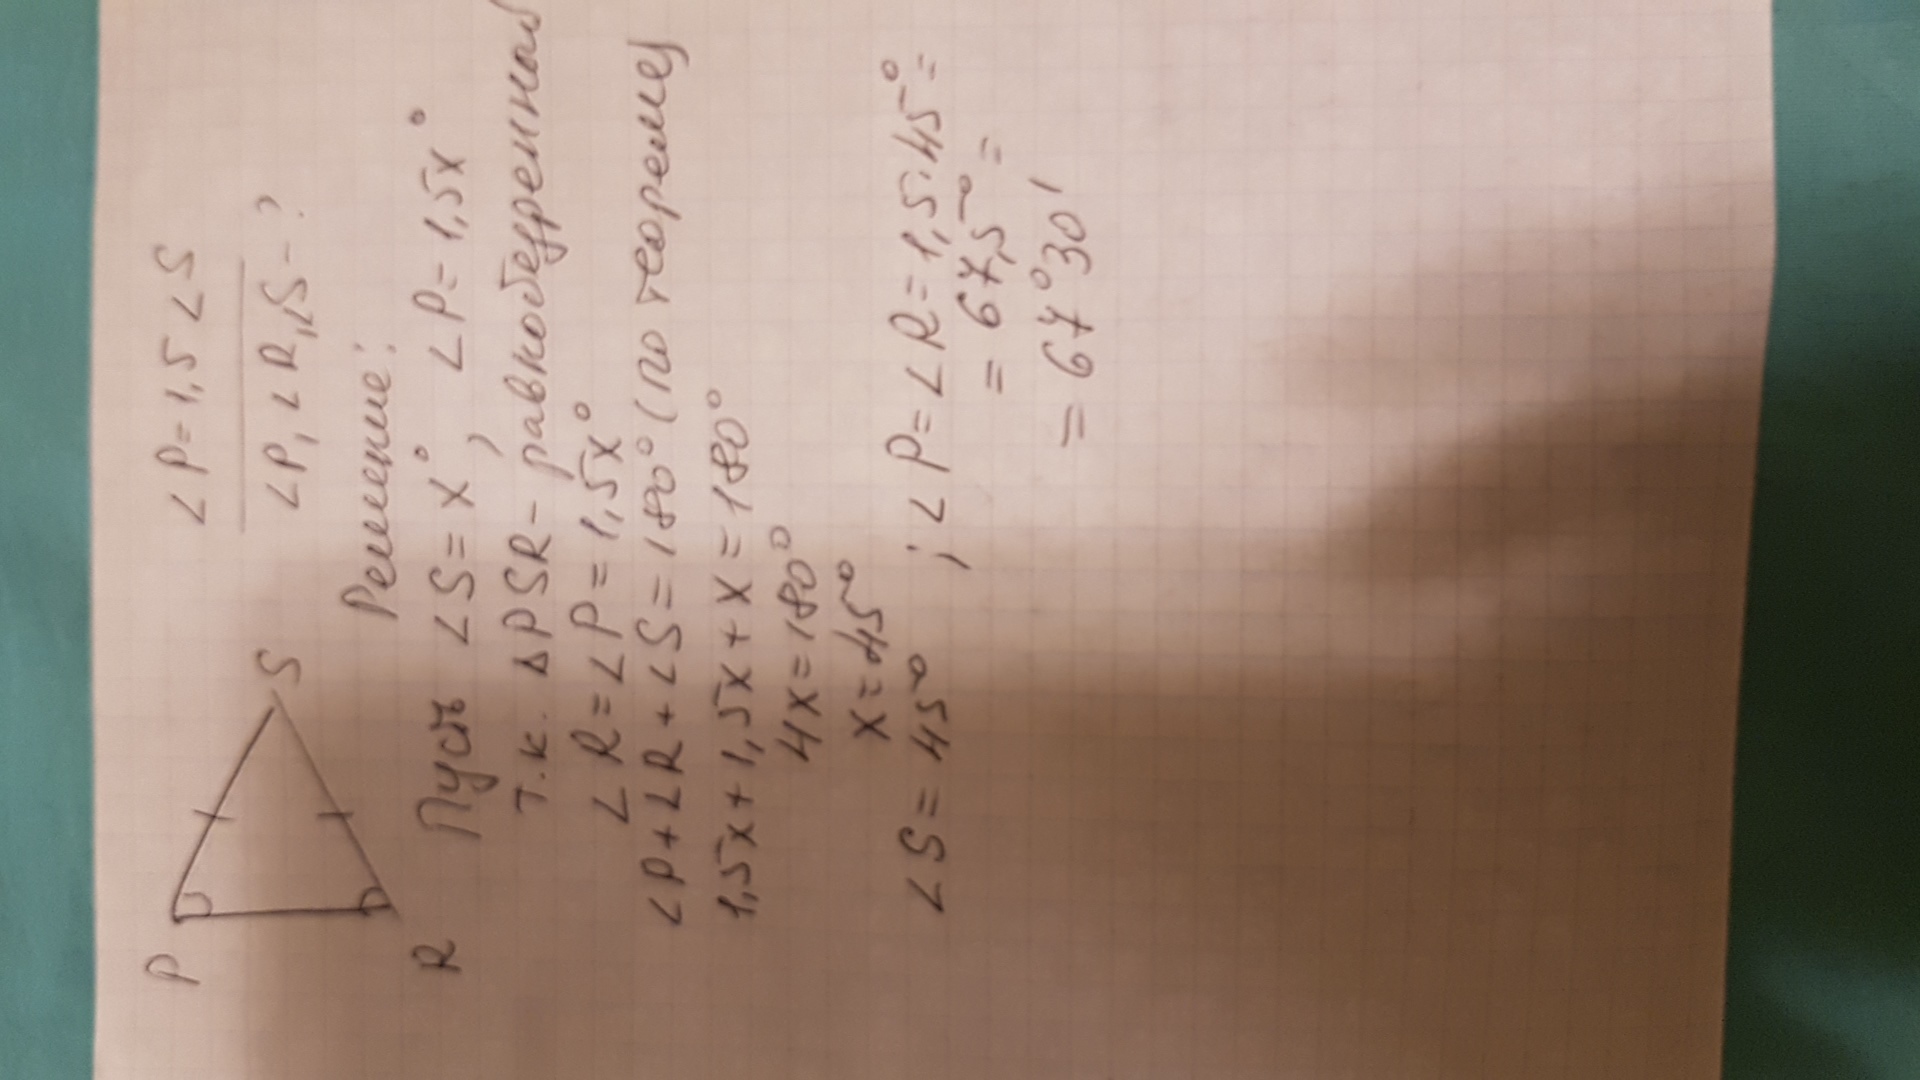 P
S
R
∠P = 1,5 ∠S
∠P, ∠R, ∠S - ?
Решение:
Пусть ∠S = x°, ∠P = 1,5x°
т.к. ΔPSR - равнобедренный
∠R = ∠P = 1,5x°
∠P + ∠R + ∠S = 180° (по теореме)
1,5x + 1,5x + x = 180°
4x = 180°
x = 45°
∠S = 45° ; ∠P = ∠R = 1,5·45° =
= 67,5° =
= 67°30'